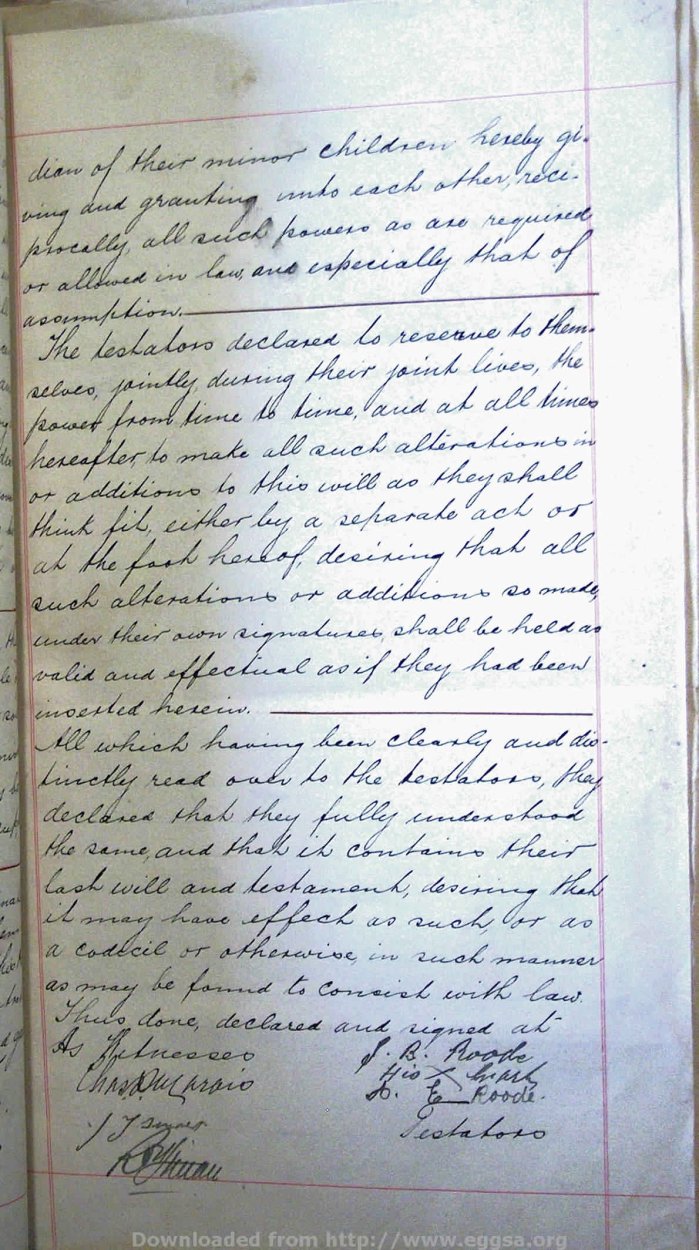 dian of their minor children hereby gi-
ving and granting unto each other, reci-
procally, all such powers as are required
or allowed in law, and especially that of
assumption.
The testators declared to reserve to them-
selves, jointly, during their joint lives, the
power from time to time, and at all times
hereafter, to make all such alterations in
or additions to this will as they shall
think fit, either by a separate act or
at the foot hereof, desiring that all
such alterations or additions so made,
under their own signatures, shall be held as
valid and effectual as if they had been
inserted herein.
All which having been clearly and dis-
tinctly read over to the testators, they
declared that they fully understood
the same, and that it contains their
last will and testament, desiring that
it may have effect as such, or as
a codecil or otherwise, in such manner
as may be found to consist with law.
Thus done, declared and signed at
As Witnesses
J. B. Roode
His X Mark
Chas Marais
E Roode.
Testators
Downloaded from http://www.eggsa.org